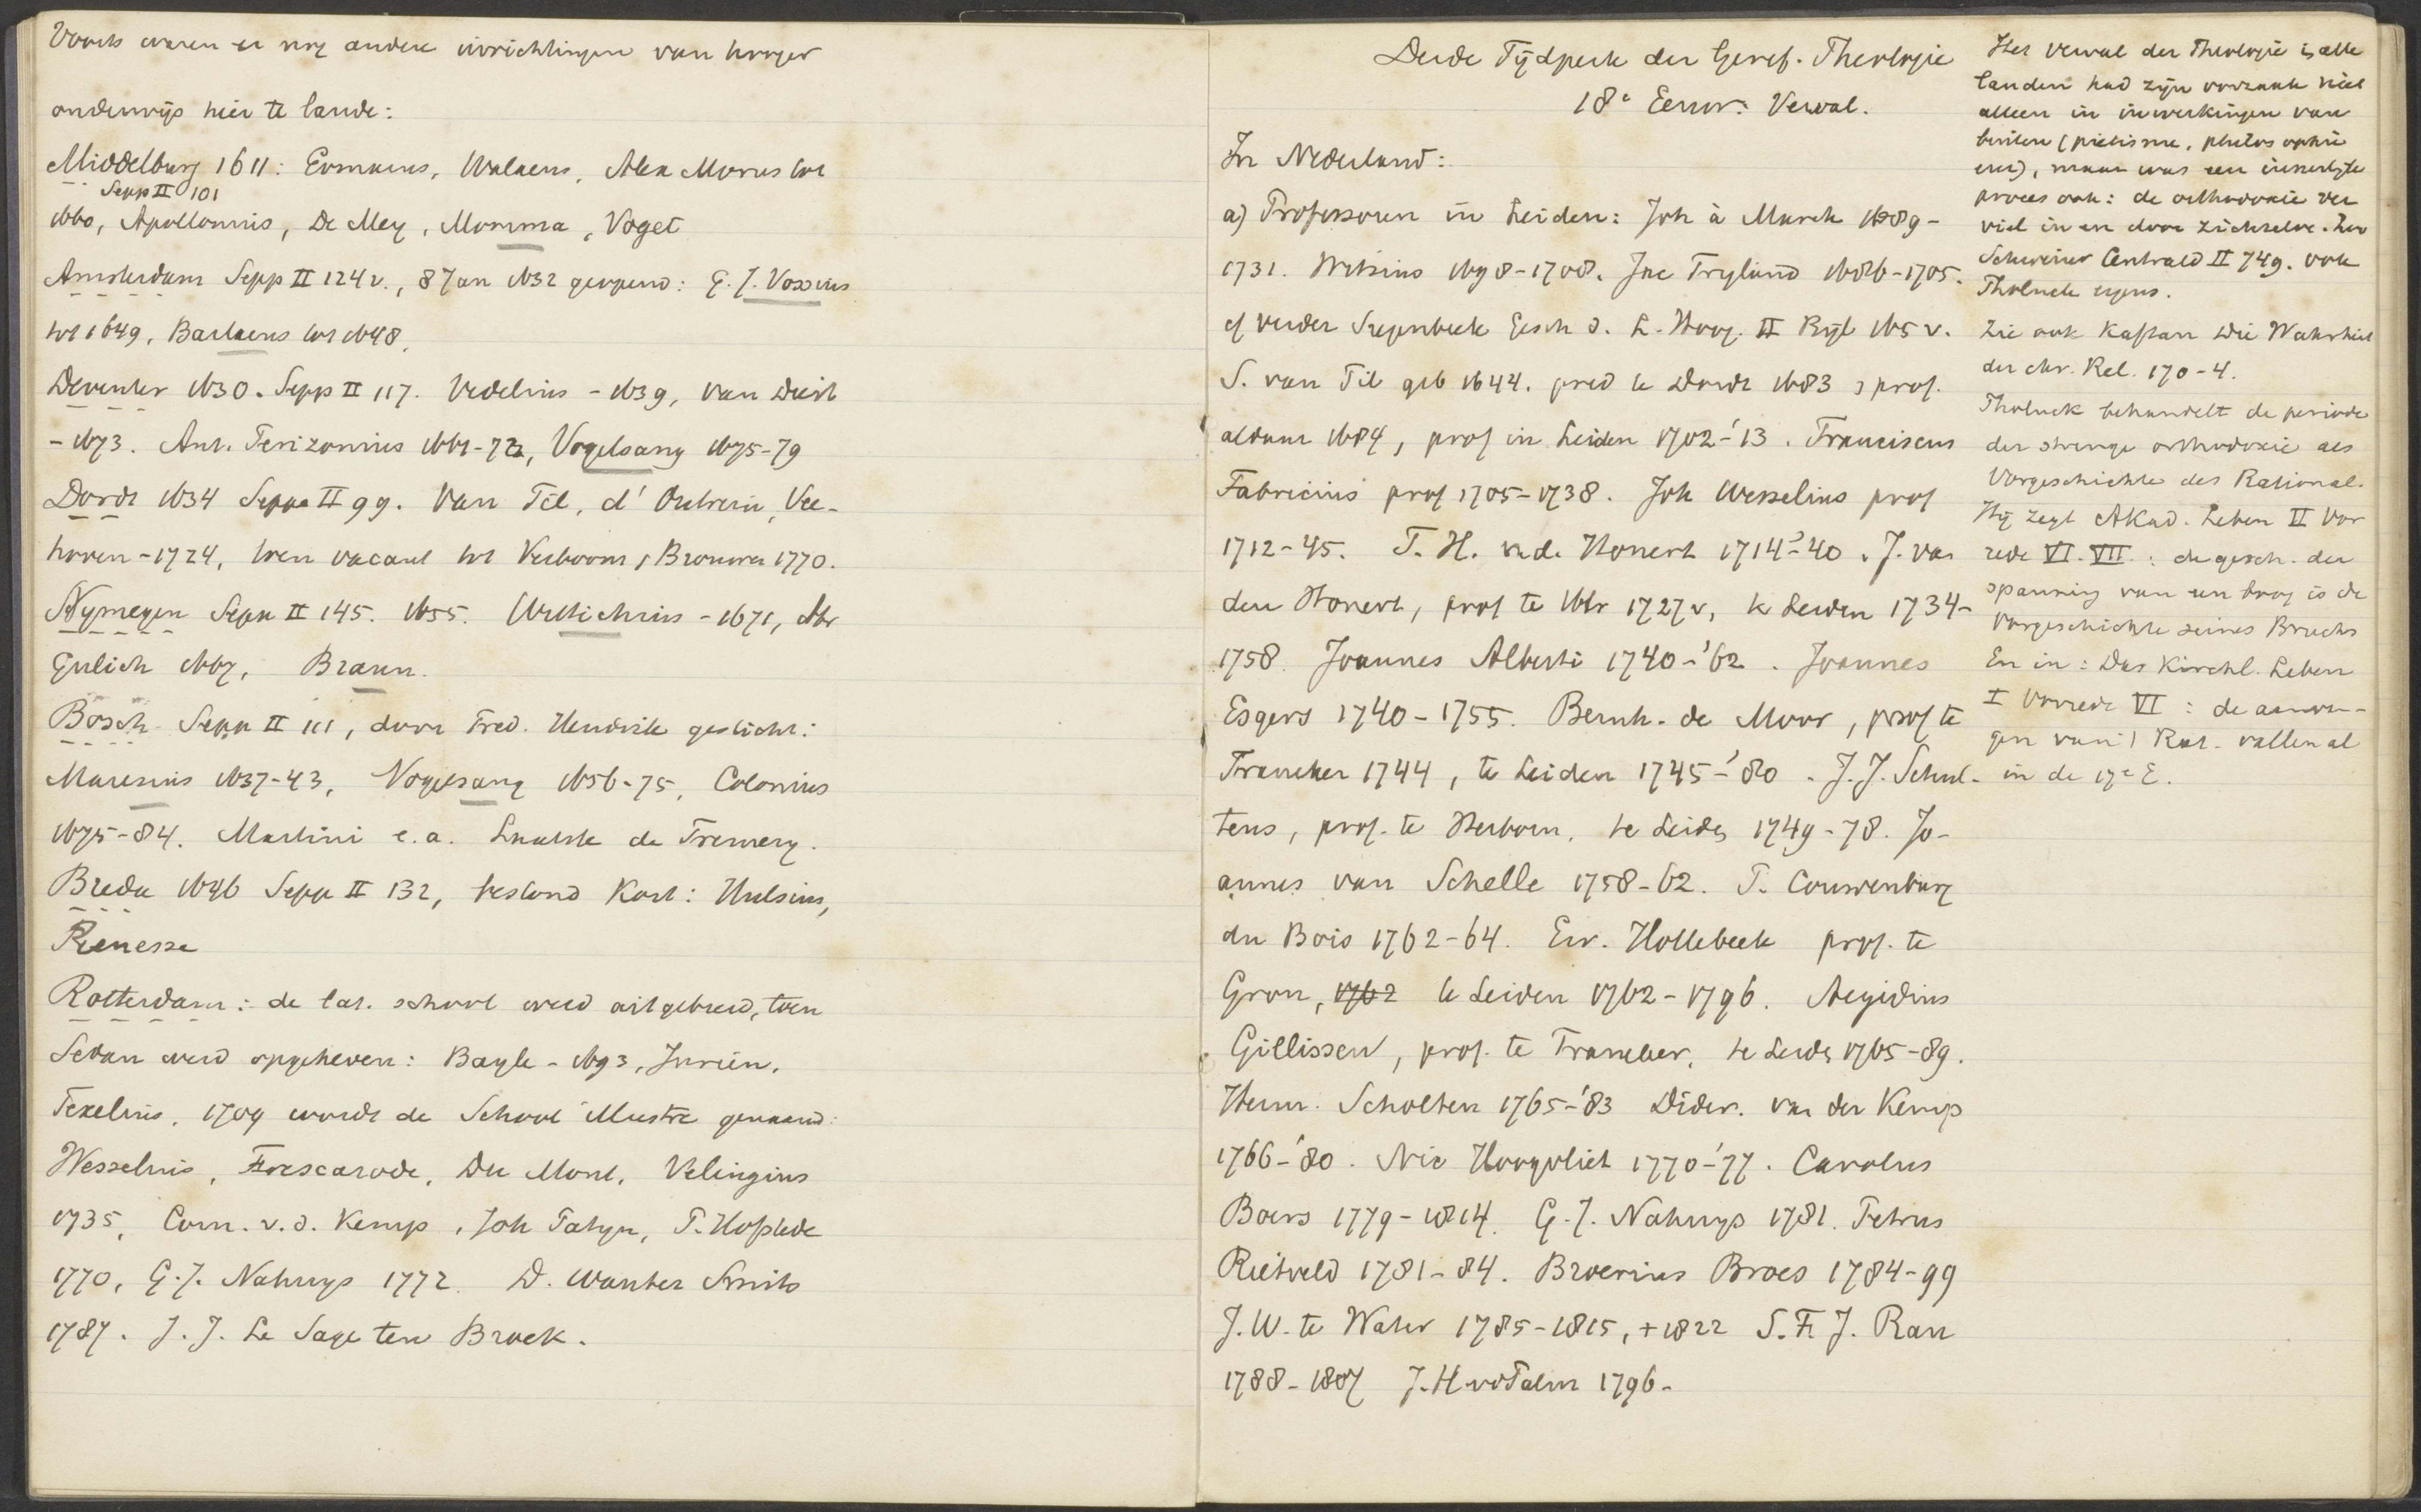 Voorts waren er nog andere inrichtingen van hooger
onderwijs hier te lande:
Middelburg 1611: Walaeus, Alex Morus tot
Sepp II 101
1660, Apollonius, De Mey, Momma, Voget
Amsterdam Sepp II 124 v., 8 Jan 1632 geopend: G. J. Vossius
tot 1649, Barlaeus tot 1648,
Deventer 1630. Sepp II 117. Vedelius - 1639, van Diest
- 1673. Ant. Perizonius 1661-72, Vogelsang 1675-79
Dordt 1634 Sepp II 99. Van Til, d'Outrein, Vee-
hoven - 1724, toen vacant tot Verboom, Brouwer 1770.
Nymegen Sepp II 145. 1655. Wittichius - 1671, Abr
Gulich 1667, Braun.
Bosch Sepp II 111, door Fred. Hendrik gesticht:
Maresius 1637-43, Vogelsang 1656-75, Colonius
1675-84. Martini e.a. Laatste de Fremery.
Breda 1646 Sepp II 132, bestond kort: Hulsius,
Renesse
Rotterdam: de lat. school werd uitgebreid, toen
Sedan werd opgeheven: Bayle - 1693, Jurieu.
Texelius. 1709 wordt de School illustre genaamd:
Wesselius, Du Mont, Velingius
1735, Corn. v. d. Kemp, Joh Patyn, P. Hofstede
1770, G. J. Nahuys 1772. D. Wanter Smits
1787. J. J. Le Sage ten Broek.
Derde Tijdperk der Geref. Theologie
18e Eeuw: Verval.
In Nederland:
a) Professoren in Leiden: Joh à Marck 1689-
1731. Witsius 1698-1708. Jac Trigland 1686-1705.
cf verder Siegenbeek Gesch d. L. Hoog. II Bijl 165 v.
S. van Til geb 1644. pred te Dordt 1683 prof.
aldaar 1684, prof in Leiden 1702-'13. Franciscus
Fabricius prof 1705-1738. Joh Wesselius prof
1712-45. T. H. v. d. Honert 1714-'40. J. van
den Honert, prof te Utr 1727 v, te Leiden 1734-
1758. Joannes Alberti 1740-'62. Joannes
Esgers 1740-1755. Bernh. de Moor, prof te
Franeker 1744, te Leiden 1745-'80. J. J. Schul-
tens, prof. te Herborn, te Leiden 1749-78. Jo-
annes van Schelle 1758-62. P. Couwenburg
du Bois 1762-64. Ew. Hollebeek prof. te
Gron, 1762 te Leiden 1762-1796. Aegidius
Gillissen, prof. te Franeker, te Leiden 1765-89.
Herm. Scholten 1765-'83 Dider. van der Kemp
1766-'80. Nic Hoogvliet 1770-'77. Carolus
Boers 1779-1814. G. J. Nahuys 1781. Petrus
Rietveld 1781-84. Broerius Broes 1784-99
J. W. te Water 1785-1815, + 1822 S. F. J. Rau
1788-1807 J. H vd Palm 1796-
Het verval der Theologie in alle
landen had zijn oorzaak niet
alleen in inwerkingen van
buiten (pietisme, philosophie
enz), maar was een innerlijk
proces ook: de orthodoxie ver
viel in en door zichzelve. Zoo
Schweizer Centrald II 749. ook
Tholuck ergens.
Zie ook Kaftan Die Wahrheit
der chr. Rel. 170-4.
Tholuck behandelt de periode
der strenge orthodoxie als
Vorgeschichte des Rational.
Hij zegt Akad. Leben II Vor
rede VI. VII.: de gesch. der
spanning van een boog is de
Vorgeschichte seines Bruchs
En in: Das kirchl. Leben
I Vorrede VI: de aanvan-
gen van 't Rat. vallen al
in de 17e E.